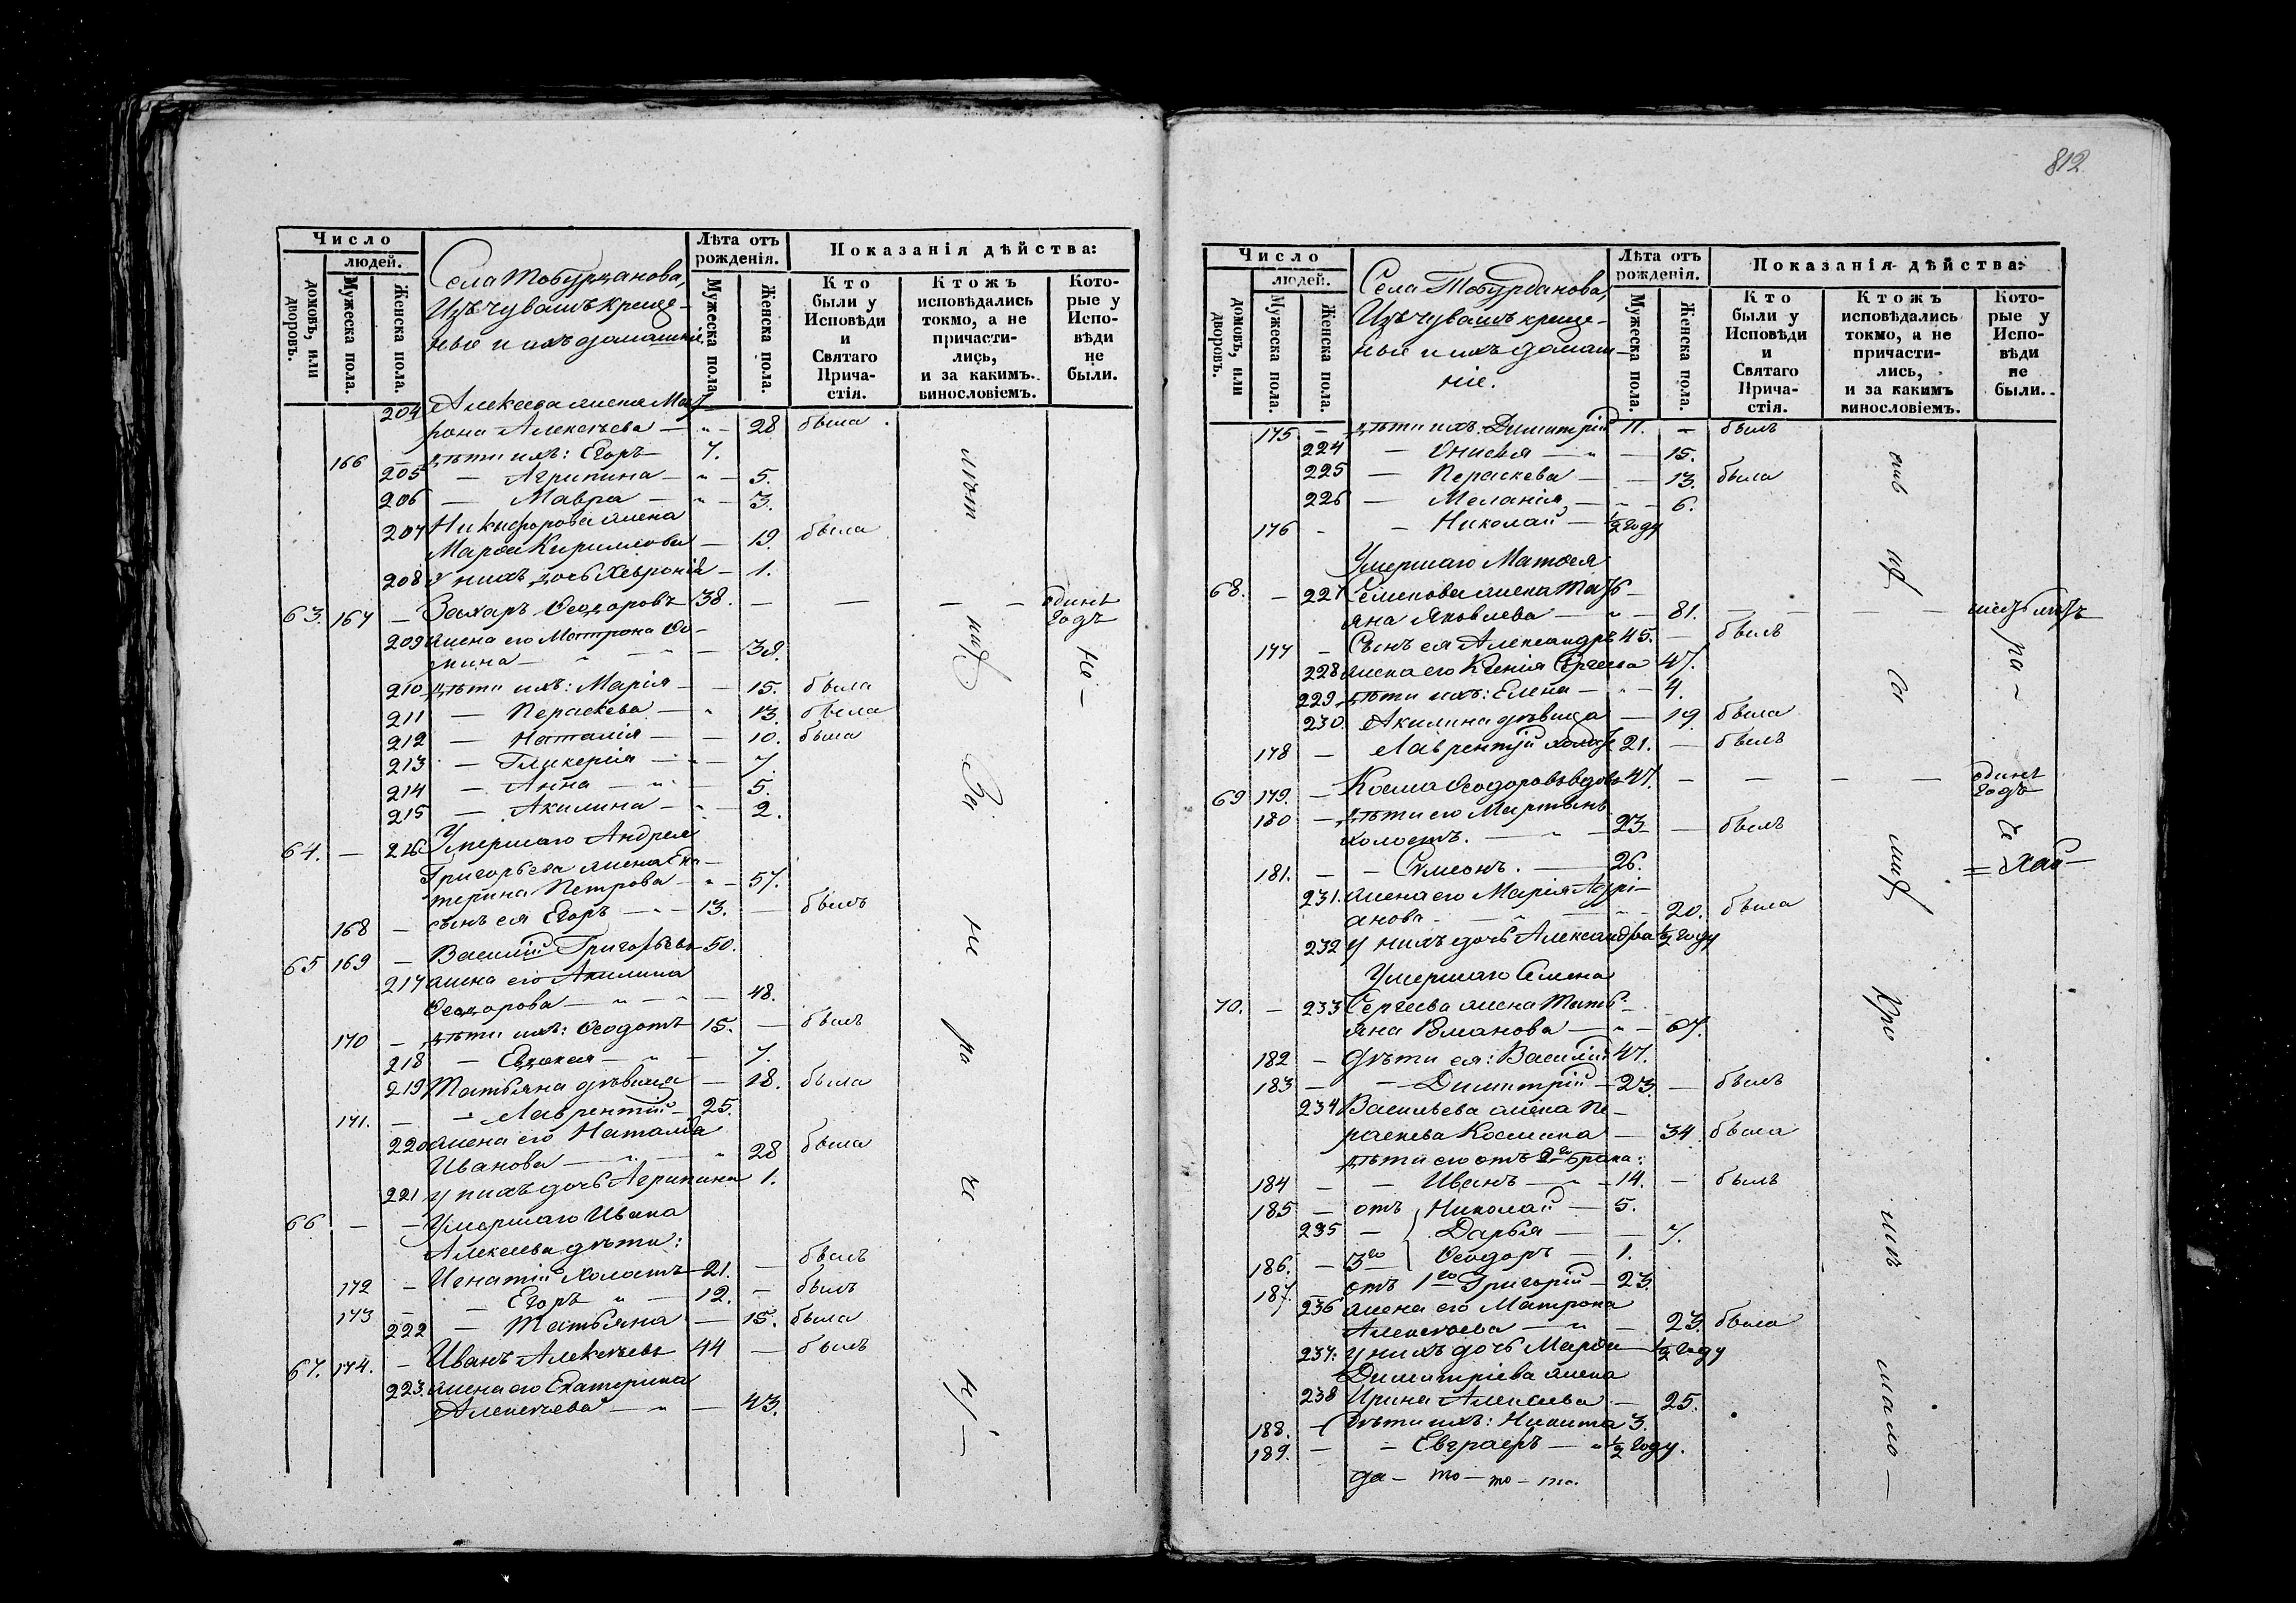 Число
людей.
домовъ, или дворовъ.
Мужеска пола.
Женска пола.
Села Тобурданова,
Изъ чувашъ креще-
ные и ихъ домашніе
Лѣта отъ рожденія.
Мужеска пола.
Женска пола.
Показанія дѣйства:
Кто были у Исповѣди и Святаго Прича-стія.
Ктожъ исповѣдались токмо, а не причасти-лись, и за какимъ винословіемъ.
Кото-рые у Испо-вѣди не были.
204 Алексѣева жена Мат-
рона Алексѣева — " — 28 была
166 — дѣти ихъ: Егоръ — 7.
205 — Агрипина — " — 5.
206 — Мавра — " — 3.
207 Никифорова жена
Марѳа Кириллова — 19. была
208 у нихъ дочь Хевронія — 1.
63. 167 — Захаръ Ѳедоровъ 38. — — — — одинъ
годъ
209 жена его Матрона Ѳо-
мина — " — " — 38.
210 дѣти ихъ: Марія — — 15. была
211 — Пераскева — " 13. была
212 — Наталія — — 10. была
213 — Гликерія — " — 7.
214 — Анна — " — 5.
215 — Акилина — " — 2.
64. — 216 Умершаго Андрея
Григорьева жена Ека-
терина Петрова — " — 57.
168 — сынъ ея Егоръ — " — 13. — былъ
65 169 — Василій Григорьевъ — 50.
217 жена его Акилина
Ѳедорова — " — " — 48.
170 — дѣти ихъ: Ѳеодотъ 15. — былъ
218 — Евдокея — " — 7.
219 Татьяна дѣвица — 18. была
171. — " Лаврентій — 25.
220 жена его Наталья
Иванова — " — " 28 была
221 у нихъ дочь Агрипина 1.
66 — — Умершаго Ивана
Алексѣева дѣти:
172 — Игнатій холостъ — 21. — былъ
173 — — Егоръ " — 12. — былъ
222 — Татьяна — 15. была
67. 174. — Иванъ Алексѣевъ 44 — былъ
223. жена его Екатерина
Алексѣева — " — 43.
812
Число
людей.
домовъ, или дворовъ.
Мужеска пола.
Женска пола.
Села Тобурданова,
Изъ чувашъ креще-
ные и ихъ домаш-
ніе.
Лѣта отъ рожденія.
Мужеска пола.
Женска пола.
Показанія дѣйства:
Кто были у Исповѣди и Святаго Прича-стія.
Ктожъ исповѣдались токмо, а не причасти-лись, и за какимъ винословіемъ.
Кото-рые у Испо-вѣди не были.
175 — дѣти ихъ: Димитрій 11. — былъ
224 — Онисья — " — 15.
225 — Пераскева — — 13. была
226 — Меланія — " — 6.
176 — — Николай — ½ году
Умершаго Матѳея
68. — 227 Семенова жена Тать-
яна Яковлева — " — 81. — — — —
177 — Сынъ ея Александръ 45. — былъ
228 жена его Ксенія Сергеева 47.
229 дѣти ихъ: Елена — " — 4.
230. Акилина дѣвица — 19 была
178 — Лаврентій холостъ 21. — былъ
69 179. — Косма Ѳеодоровъ вдовъ 47. — — — — одинъ
годъ
180 — дѣти его Мартынъ
холостъ. — " — 23 — былъ
181. — — Симеонъ. — 26.
231. жена его Марія Адрі-
анова — " — " — 20. была
232 у нихъ дочь Александра ½ году
Умершаго Семена
70. — 233 Сергеева жена Тать-
яна Романова — " — 67.
182 — Дѣти ея: Василій 47.
183 — — Димитрій — 23. — былъ
234 Васильева жена Пе-
раскева Космина — 34. была
дѣти его отъ 2го брака:
184 — — Иванъ — " — 14. — былъ
185 — отъ Николай — 5.
235 — Дарья — — 7.
186. — 3го Ѳеодоръ — 1.
187. — отъ 1го Григорій — 23.
236 жена его Матрона
Алексѣева — " — 23. была
237. у нихъ дочь Марѳа — ½ году
Димитріева жена
238 Ирина Алексѣева — 25.
188. — Дѣти ихъ: Никита 3.
189. — — Евграфъ — " ½ году.
да — то — то — то.